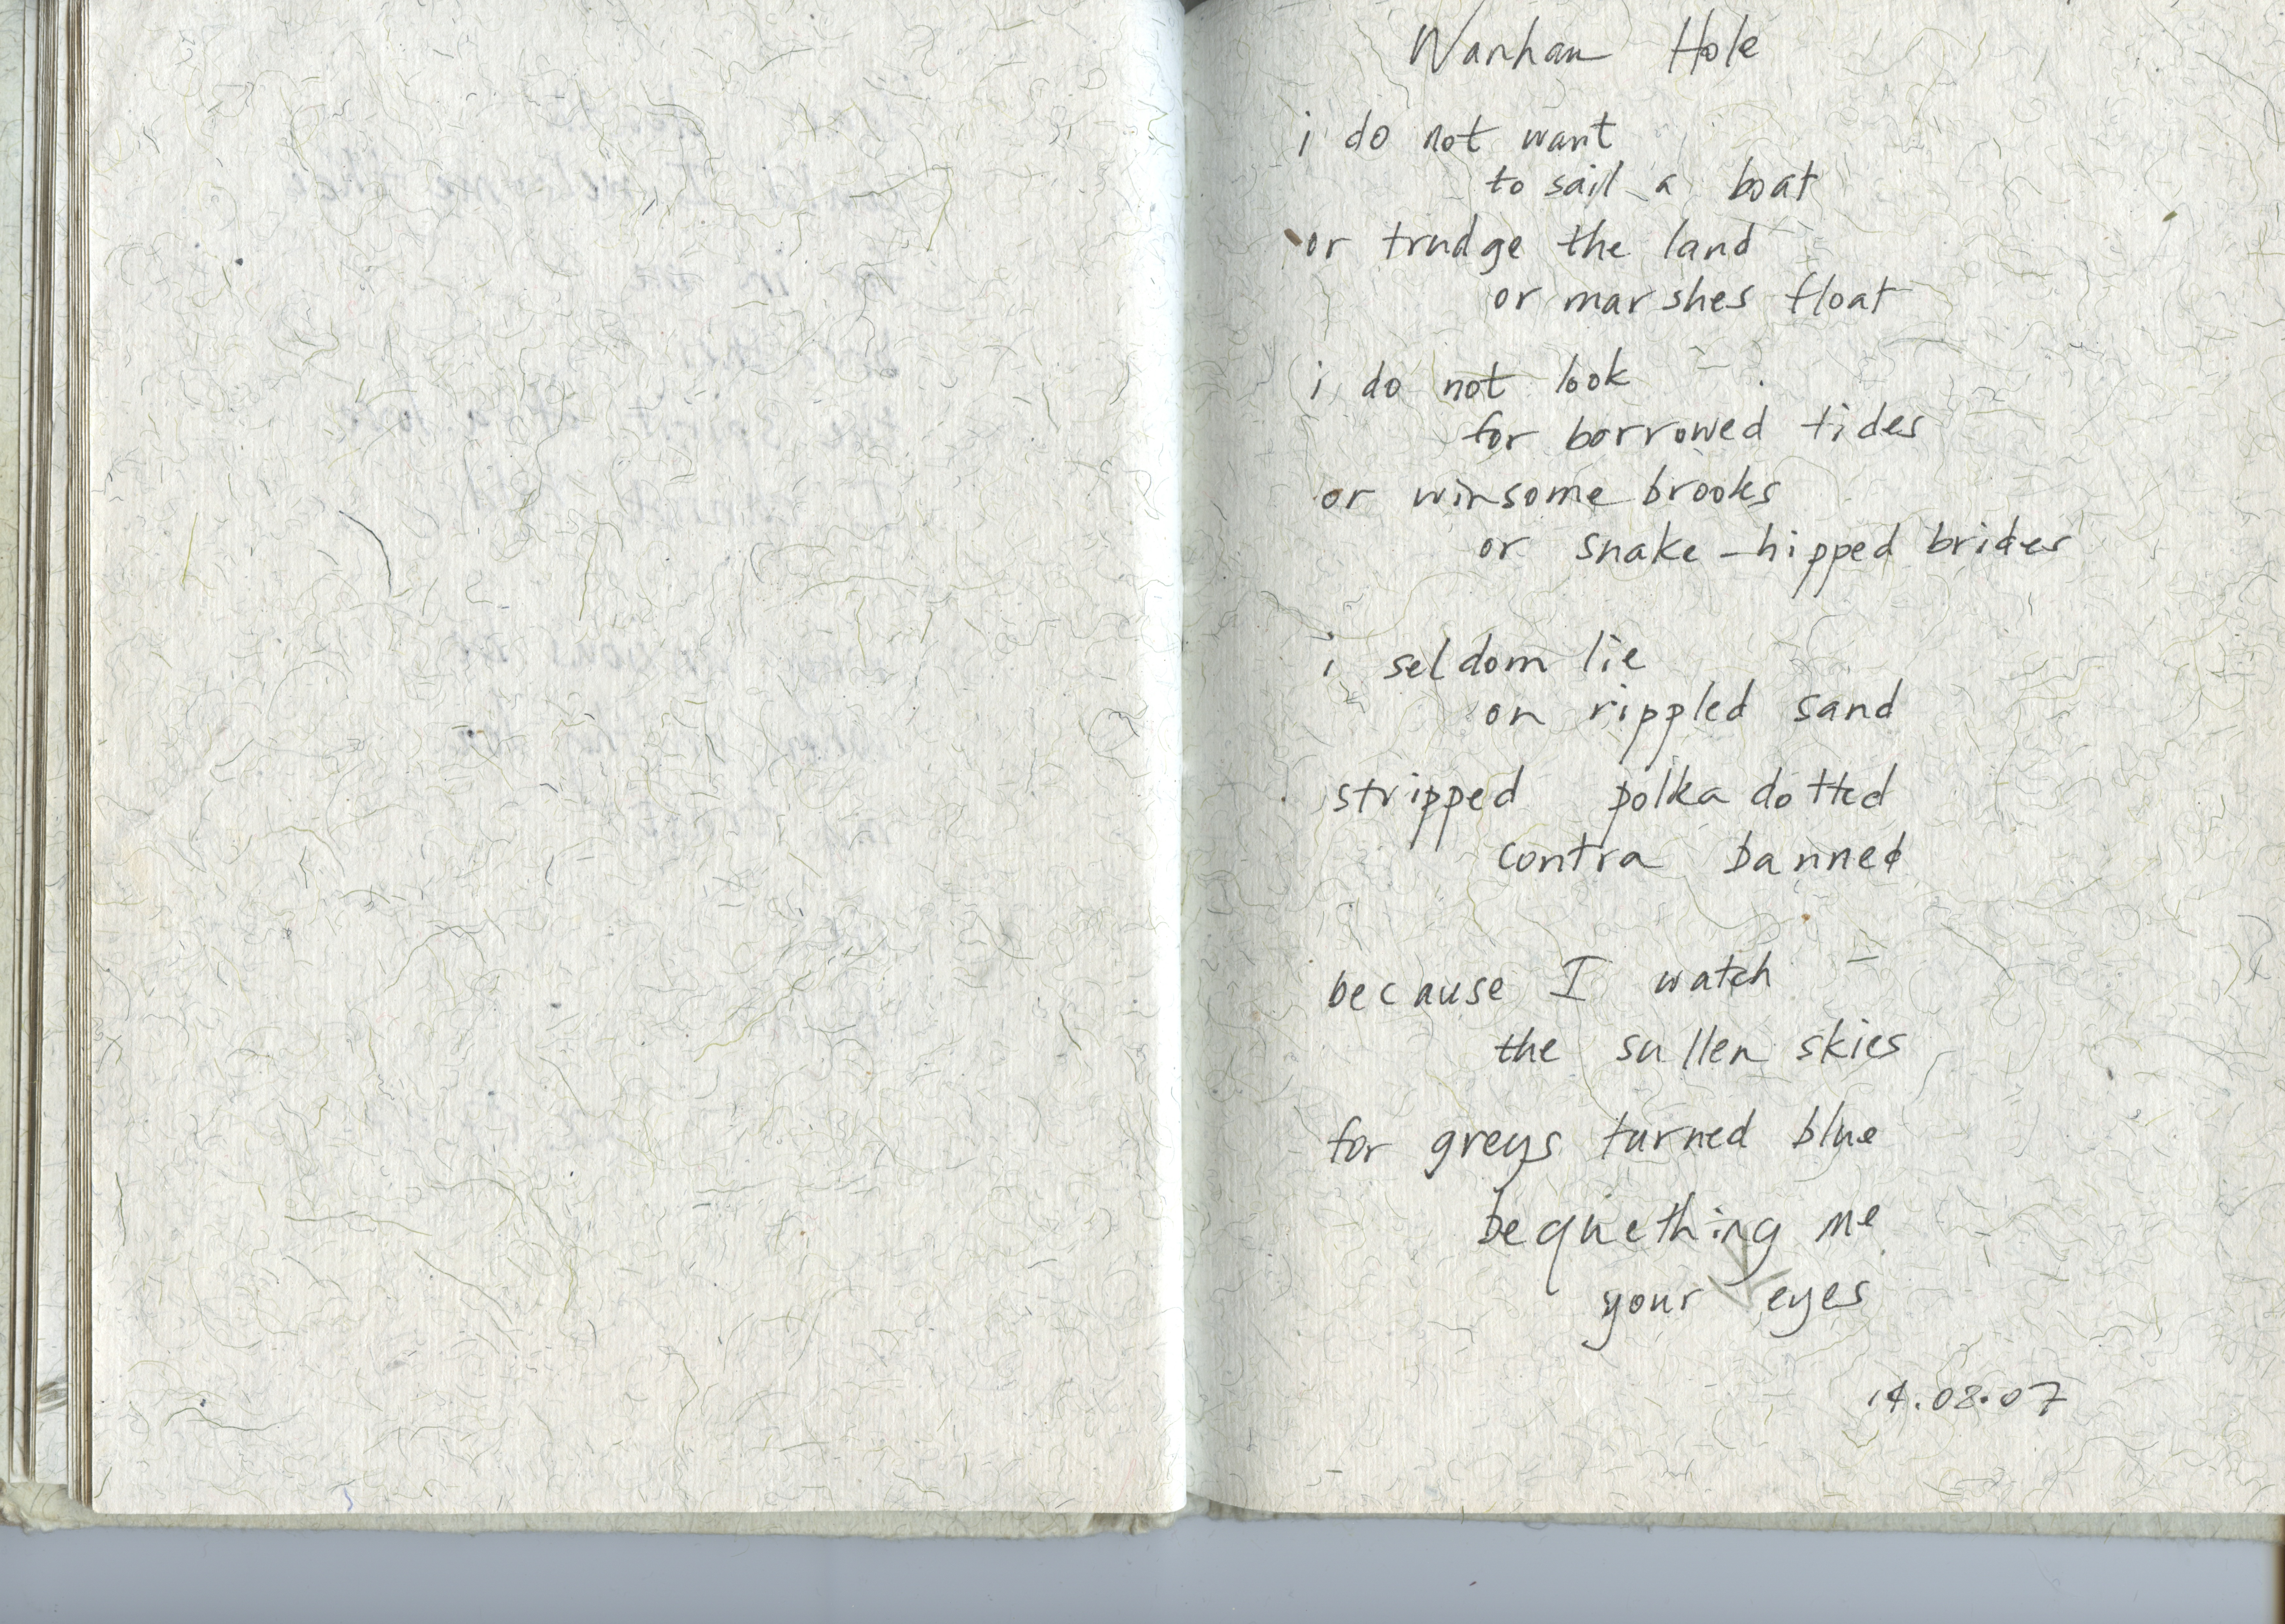 Wanhan Hole
i do not want
to sail a boat
or trudge the land
or marshes float
i do not look
for borrowed tides
or winsome brooks
or snake-hipped brides
i seldom lie
on rippled sand
stripped polka dotted
contra banned
because I watch
the sullen skies
for greys turned blue
bequething me
your eyes
14.08.07